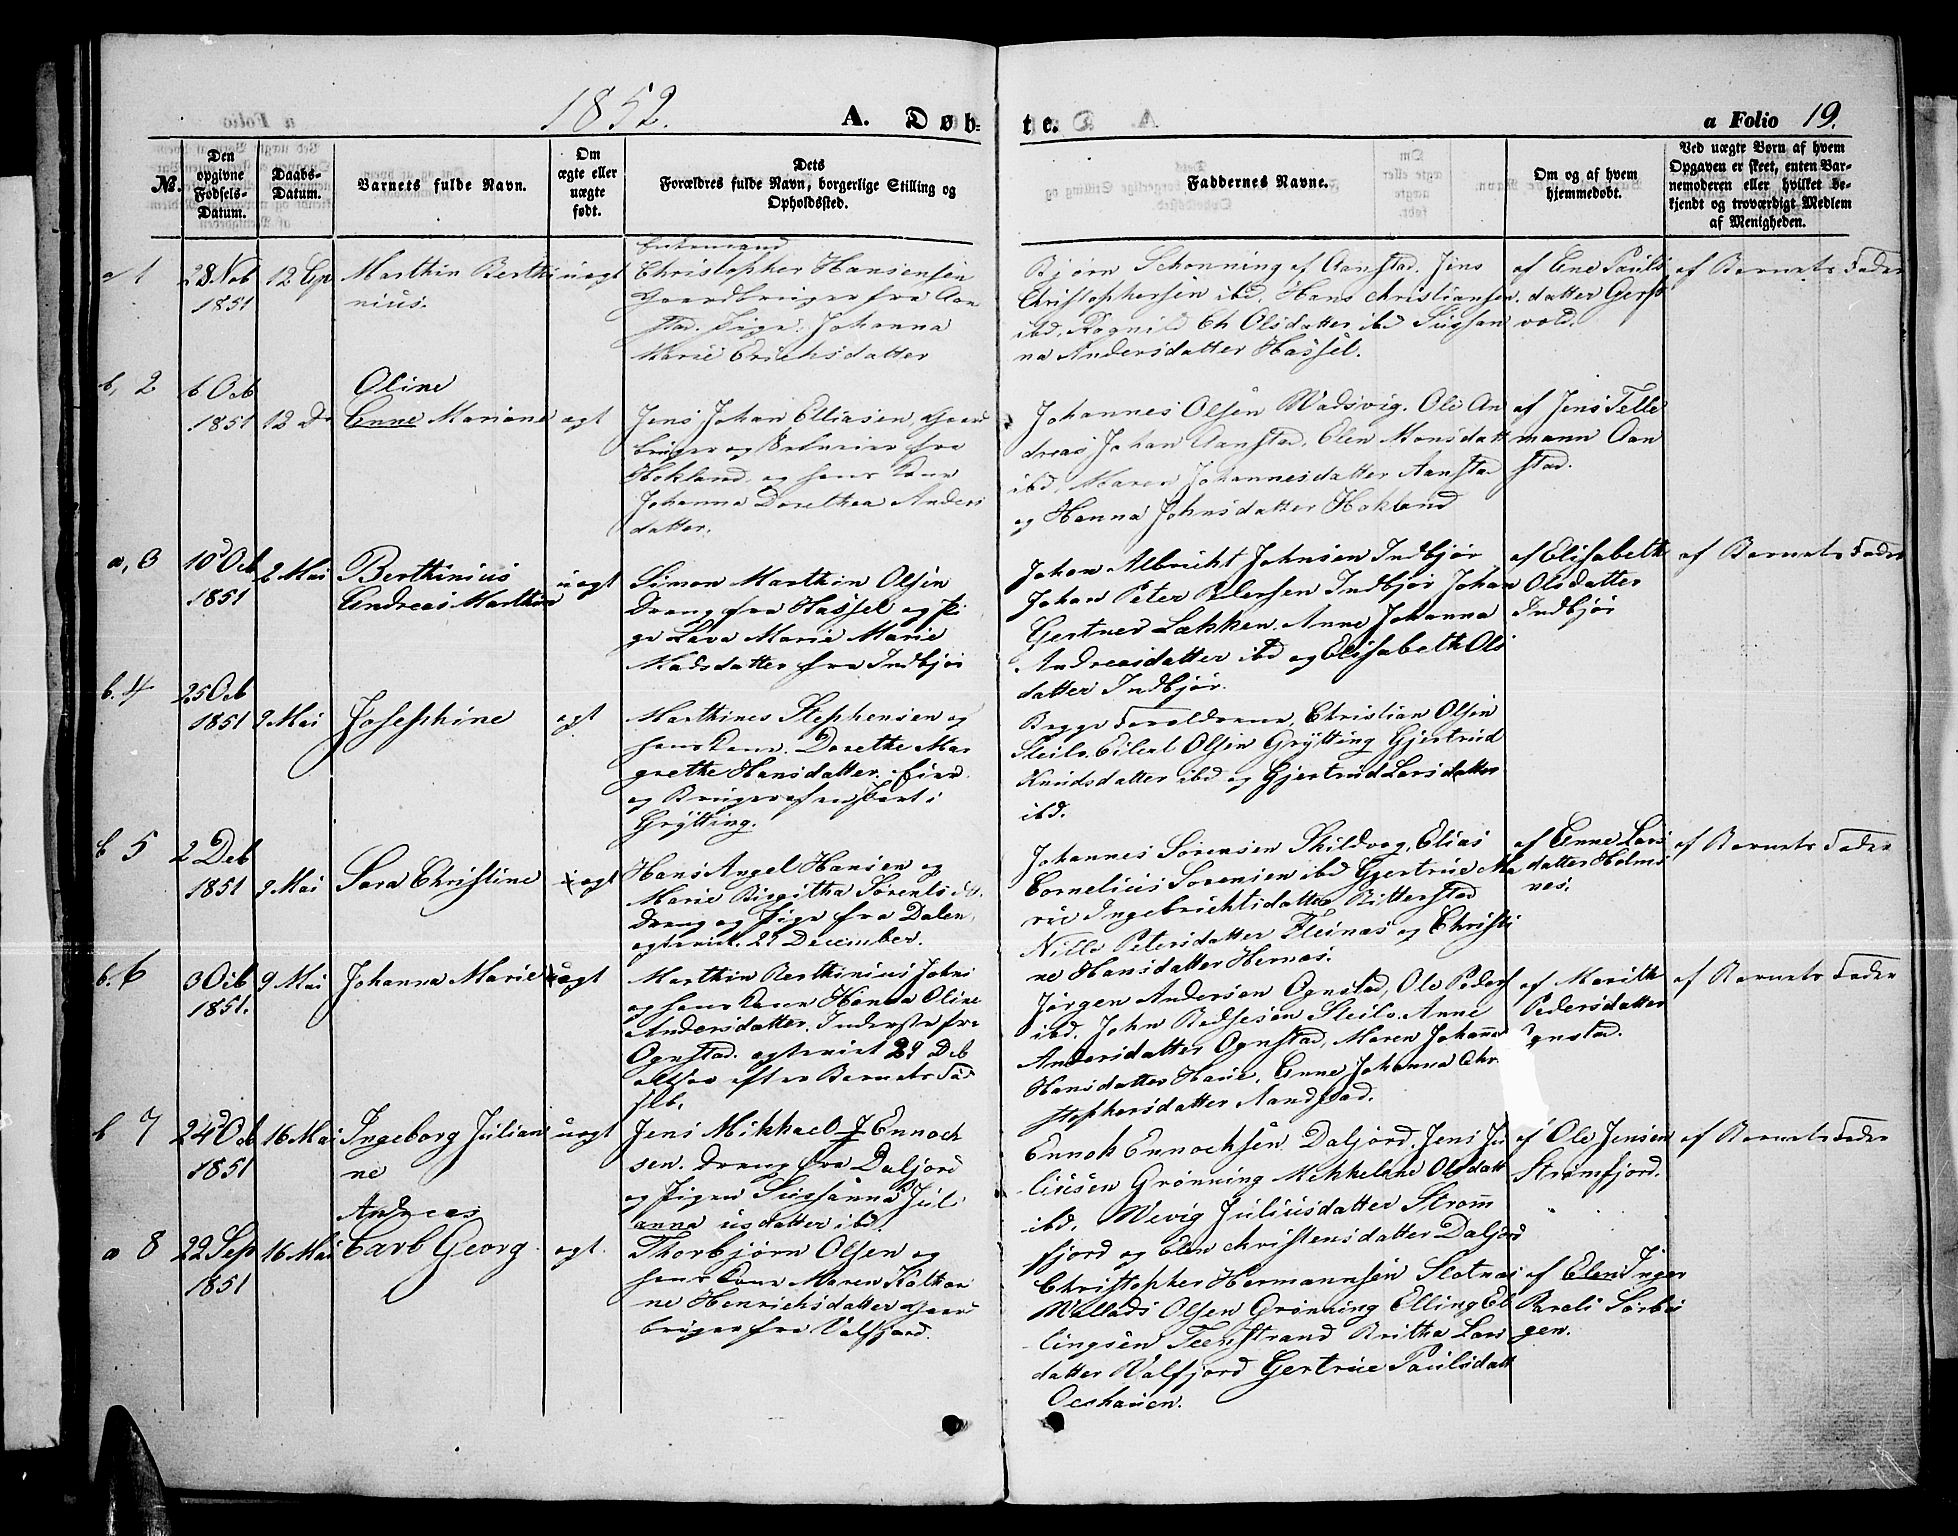 1852.
A. Døb-
te.
a Folio 19.
№.
Den opgivne Fødsels-Datum.
Daabs-Datum.
Barnets fulde Navn.
Om ægte eller uægte født.
Dets Forældres fulde Navn, borgerlige Stilling og Opholdssted.
Faddernes Navne.
Om og af hvem hjemmedøbt.
Ved uægte Børn af hvem Opgaven er skeet, enten Barnemoderen eller hvilket bekjendt og troværdigt Medlem af Menigheden.
a 1
28 Nob
1851
12 Ap
Marthin Berthi
nius.
uægt
Enkemand
Christopher Hansensen
Gaardbruger fra Aan
stad. Pige. Johanna
Marie Erichsdatter
Bjørn Schonning af Aanstad. Jens
Christophersen ibd. Hans Christiansen
ibd. Ragnild Ch Olsdatter ibd Sussan
na Andersdatter Hassel.
af Ene Pauls
datter Gerst
vold.
af Barnets Fader
b, 2
6 Octb
1851
12 Do
Oline
Anne Mariane
ægt
Jens Johan Elliasen, Gaard
bruger og fra
Hokland og hans Kone
Johanna Dorethea Anders
datter.
Johannes Olsen Wadsvig. Ole An
dreas Johan Aanstad, Elen Monsdatt
ibd, Maren Johannesdatter Aanstad
og Hanna Johnsdatter Hokland
af Jens Telle
mann Aan
stad.
a, 3
10 Octb
1851
2 Mai
Berthinius
Andreas Marthin
uægt
Simon Marthin Olsen
Dreng fra Hassel og Pi
ge Lava Marie Marie
Madsdatter fra Indbjør
Johan Albricht Johnsen Indbjør
Johan Peter Petersen Indbjør Johan
Gertner Løkken. Anne Johanna
Andreasdatter ibd og Elisabeth Ols
datter Indbjør.
af Elisabeth
Olsdatter
Indbjør
af Barnets Fader
b. 4
25 Octb
1851
9 Mai
Josephine
ægt
Marthines Stephensen og
hans Kone. Dorethe Mar
grethe Hansdatter. Eier
og Bruger af en Part i
Grytting.
Begge Forældrene, Christian Olsen
Steilo. Eilert Olsen Grytting Gjertrud
Knudsdatter ibd og Gjertrud Larsdatter
ibd.
b 5
2 Deb
1851
9 Mai
Sara Christine
uægt
Hans Angel Hansen og
Marie Birgitha Sørensdtt.
Dreng og Pige fra Dalen.
ægteviet. 29 December.
Johannes Sørensen Skildvog, Elias
Cornelius Sorensen ibd Gjertrue Ma
rie Ingebrichtsdatter Ritterstad
Nille Petersdatter Fleinæs og Christi
ne Hansdatter Hernæs.
af Anne Lars
datter Holms
næs.
af Barnets Fader
b. 6
3 Octb
1851.
9 Mai
Johanna Marie
uægt
Marthin Berthinius Johns
og hans Kone Hanna Oline
Andersdatter. Inderste fra
Ognstad. ægteviet 29 Deb
altsaa efter Barnets Fød
sel.
Jørgen Andersen Ognstad, Ole Peders
ibd. John Steilo. Anne
Andersdatter Ognstad, Maren Johanna
Hansdatter Haue, Anne Johanna Chri
stophersdatter Aanstad.
af Marith
Pedersdatter
Ognstad.
af Barnets Fader
b 7
24 Octb
1851
16 Mai
Ingeborg Julian
ne
uægt
Jens Mikkael J Ennoch
sen. Dreng fra Daljord
og Pigen Sussanna Juli
anna usdatter ibd.
Ennok Ennochsen Daljord. Jens Ju
liusen Grønning Mekkeline Olsdatt
ibd. Wevig Juliusdatter Strøm
fjord og Elen Christensdatter Daljord
af Ole Jensen
Strømfjord.
af Barnets Fader
a 8
22 Sep
1851
16 Mai
Andreas
Carl Georg
ægt.
Thorbjørn Olsen og
hans Kone Maren Kathar
ne Henrichsdatter Gaard
bruger fra Valfjord.
Christopher Hermannsen Slotnæs
Mellads Olsen Grønning Elling El
lingsen Teenstrand Britha Lars
datter Valfjord Gertrue Paulsdatt
Oeshauen.
af Elen Inger
Pareli Sørbø
gen.